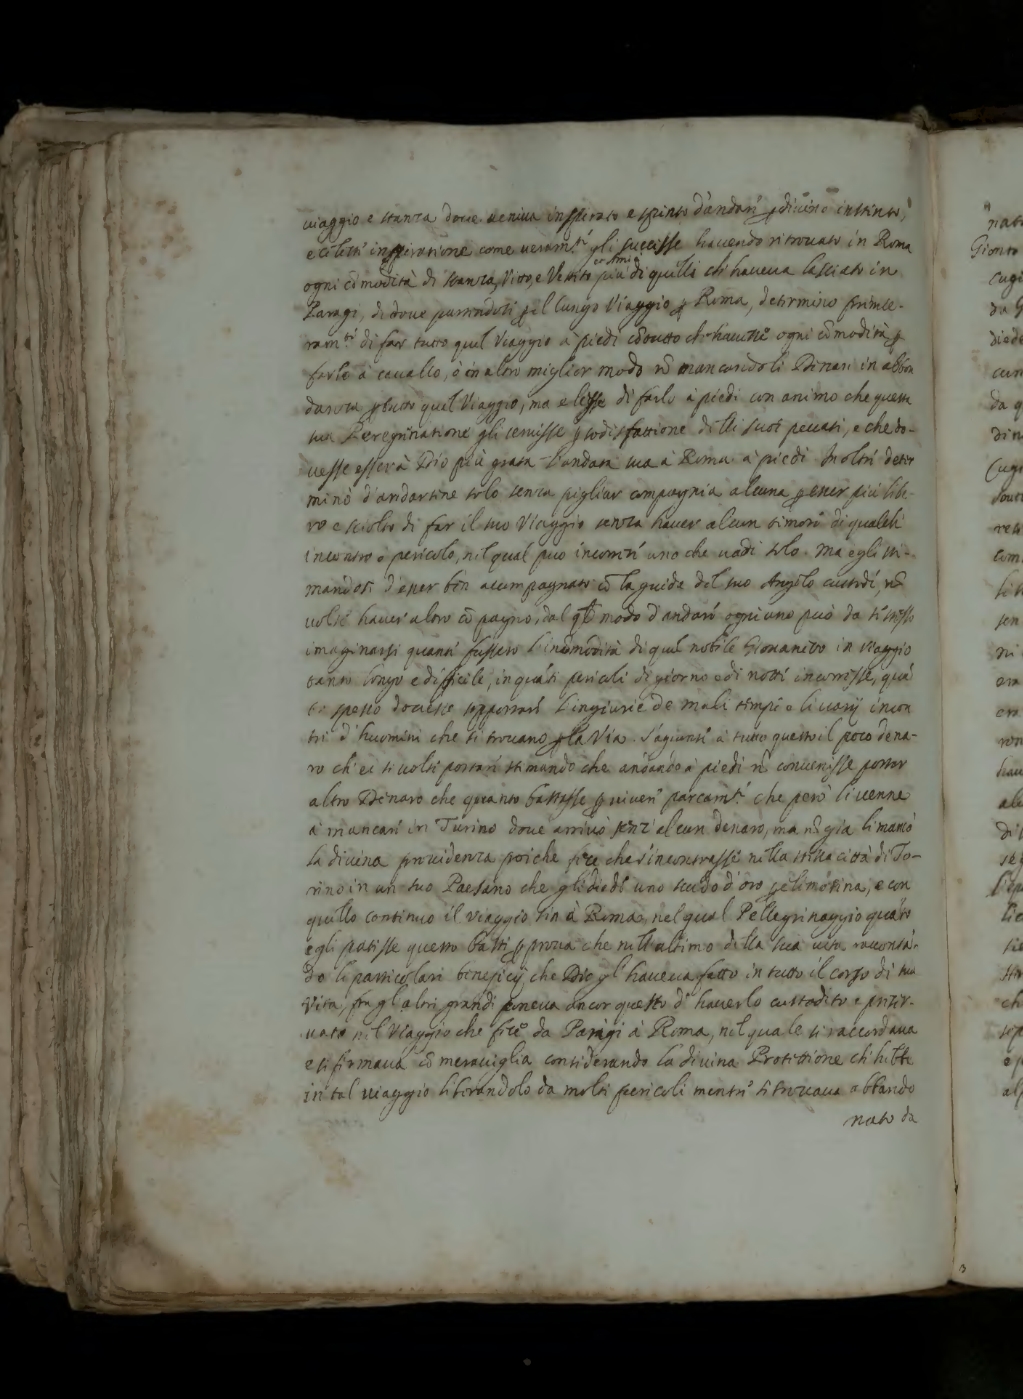 viaggio e stanza doue ueniua inspirato e spinto d'andare p diuino instinto,
e celeste inspiratione come ueram.te gli successe hauendo ritrouato in Roma
ogni cõmodità di stanza, Vitto, e Vestito più di quelli ch'haueua lasciato in
Parigi, di doue partendosi p il lungo Viaggio p Roma, determino primie-
ram.te di far tutto quel Viaggio à piedi ogni cõmodità p
farlo à cauallo, o in altro miglior modo nõ mancandoli Dinari in abbon
danza p tutto quel Viaggio, ma elesse di farlo à piedi con animo che questa
sua Peregrinatione gli seruisse p sodisfattione delli suoi peccati, e che do-
uesse esser à Dio più grata l'andata sua à Roma à piedi. Inoltre deter
minò d'andarsene solo senza pigliar compagnia alcuna p esser più libe-
ro e sciolto di far il suo Viaggio senza hauer alcun timore di qualche
incontro o pericolo, nel qual può incorrere uno che uadi solo. Ma egli sti-
mandosi d'esser ben acompagnato cõ la guida del suo Angelo custode, nõ
uolse hauer altro cõpagno, dal ql modo d'andare ogni uno può da se stesso
imaginarsi quante fussero l'incõmodità di quel nobile Giouanetto in viaggio
tanto longo e difficile, in quãti pericoli di giorno e di notte incorresse, quã
te spesso douesse sopportare l'ingiurie de mali tempi e li uarij incon
tri d'huomini che si trouano p la Via. S'agiunse à tutto questo il poco dena-
ro ch'ei si uolse portare stimando che andando à piedi nõ conuenisse portar
altro Denaro che quanto bastasse p uiuere parcam.te che però li uenne
à mancare in Turino doue arriuò senz'alcun denaro, ma nõ già li mancò
la diuina prouidenza poiche fece che s'incontrasse nella stessa città di To-
rino in un suo Paesano che gli diede uno scudo d'oro p elimosina, e con
quello continuo il viaggio sin à Roma, nel qual Pellegrinaggio quãto
egli patisse questo basti p proua che nell'ultimo della sua uita raccontã-
do li particolari beneficij che Dio gl'haueua fatto in tutto il corso di sua
Vita, fra gl'altri grandi poneua ancor questo d'hauerlo custodito e preser-
uato nel Viaggio che fece da Parigi à Roma, nel quale si raccordaua
e si firmaua cõ merauiglia considerando la diuina Protettione ch'hebbe
in tal uiaggio liberandolo da molti pericoli mentre si trouaua abbando
nato da